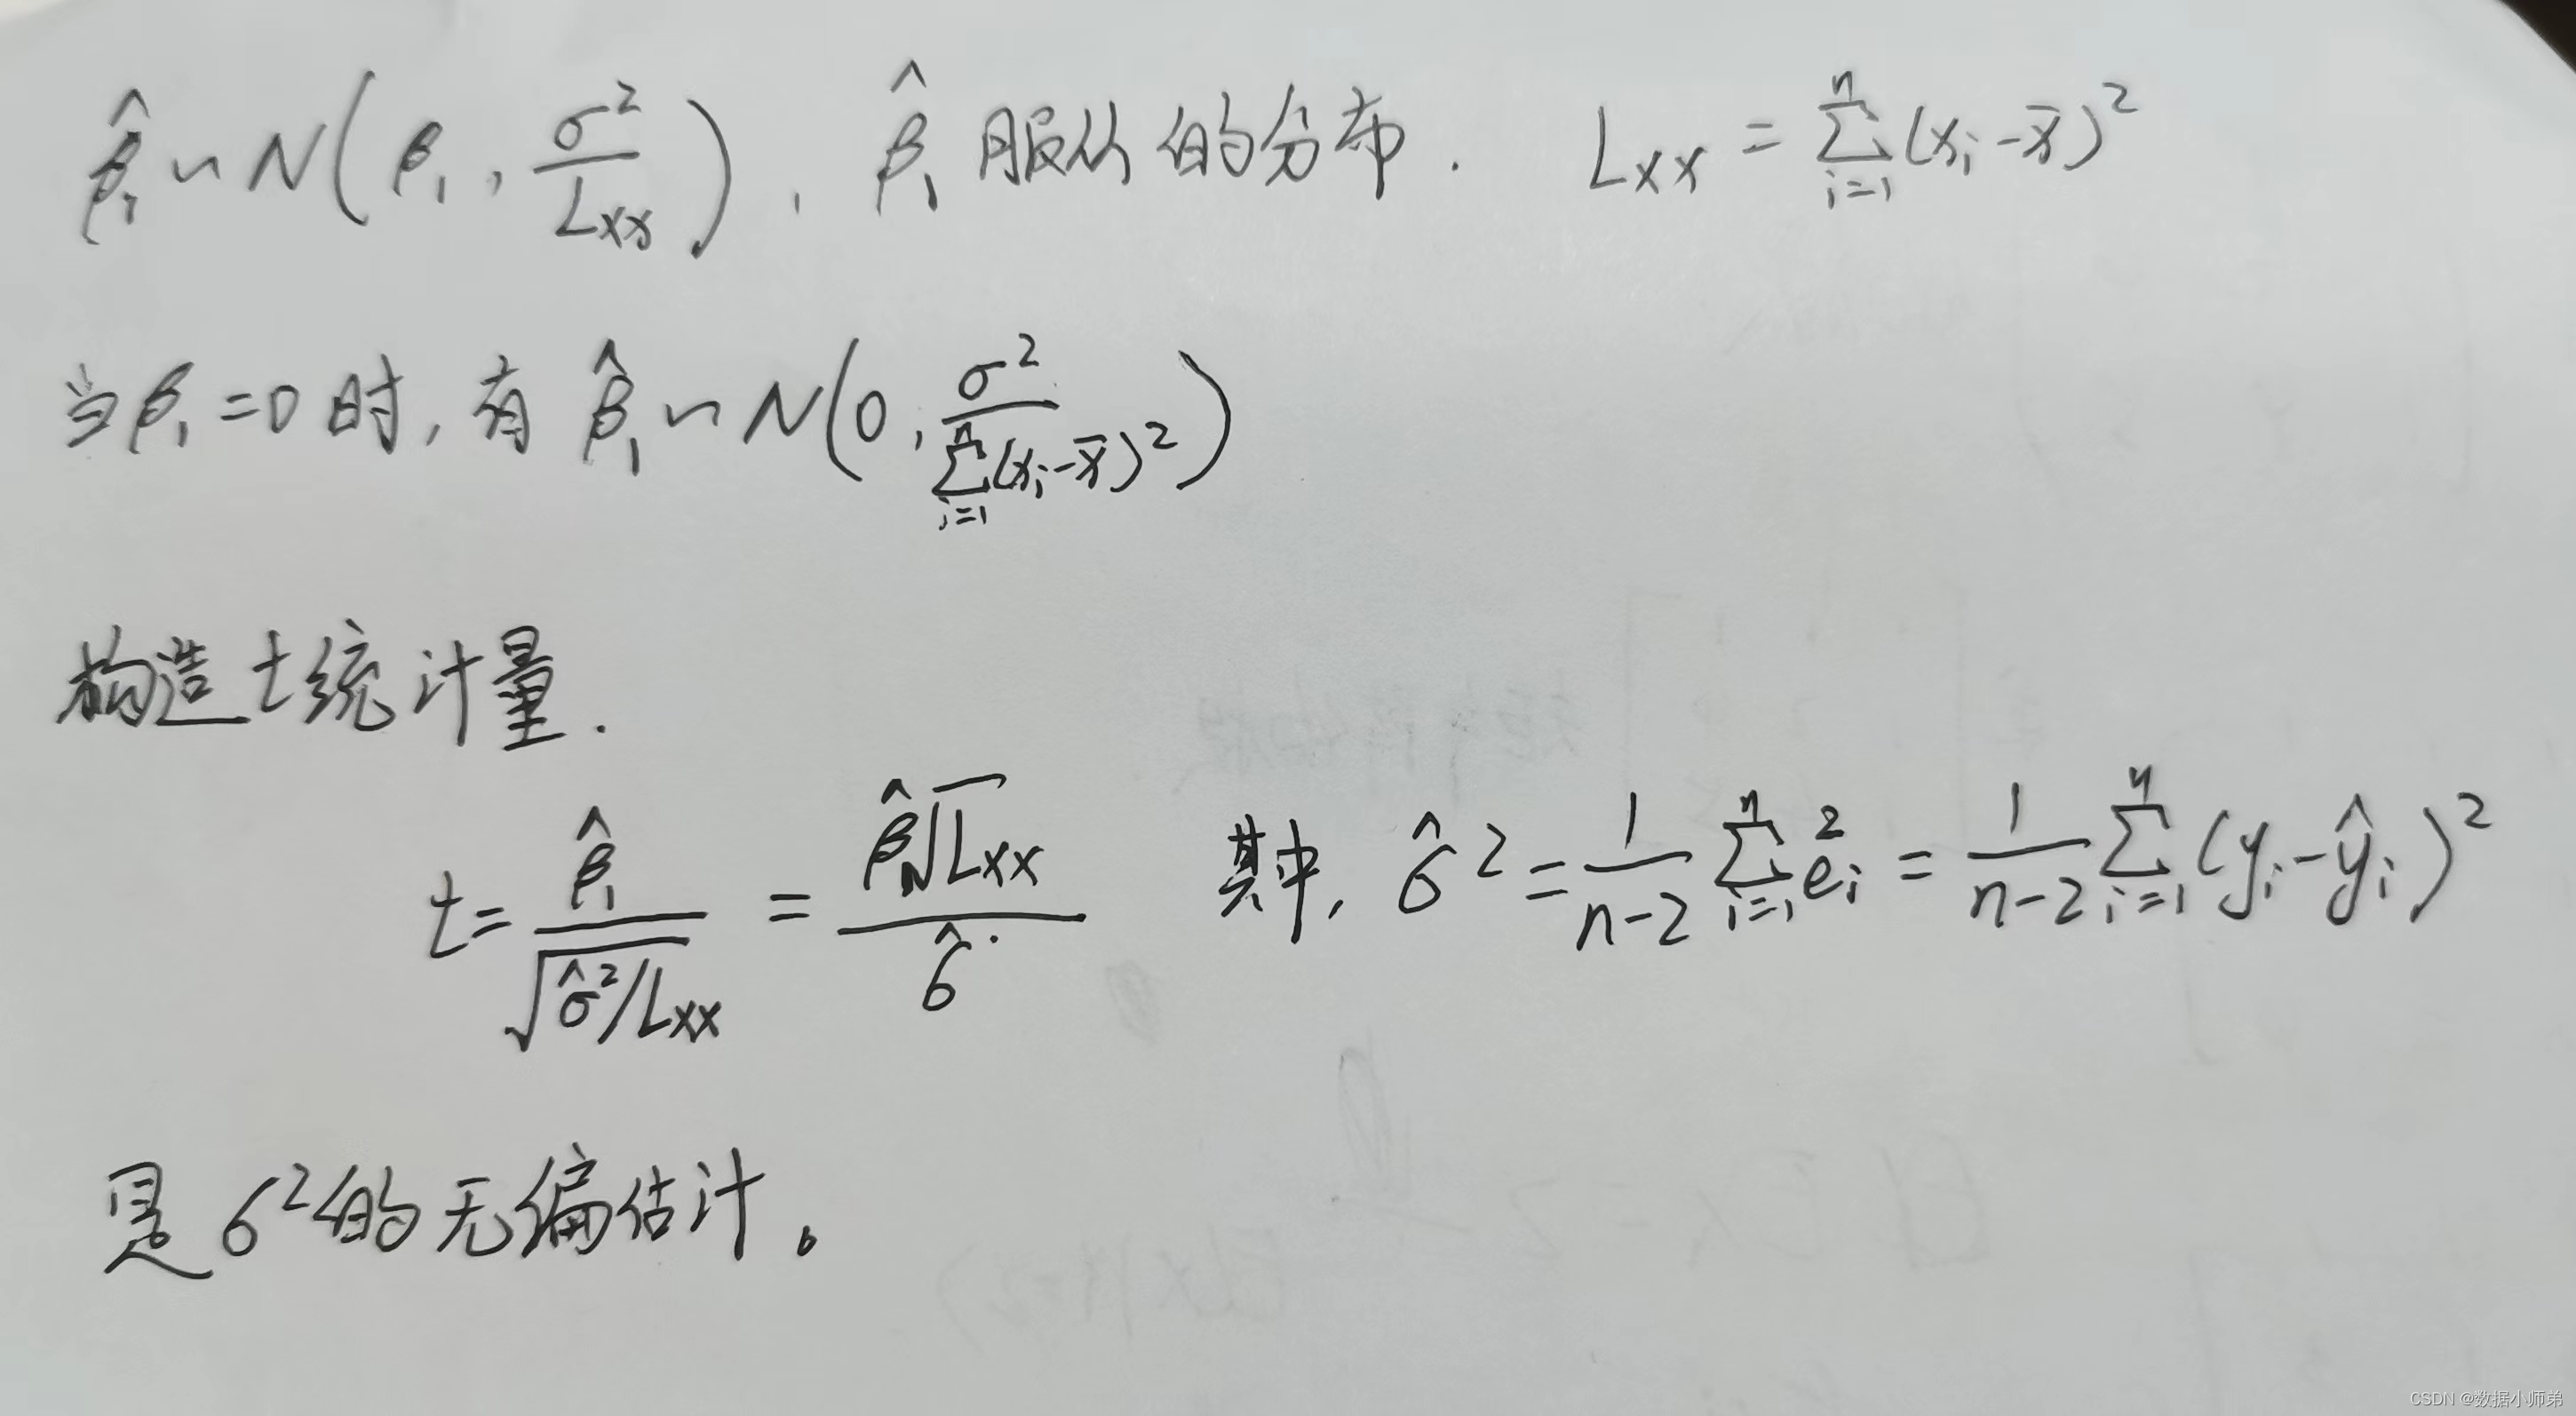 β̂₁ ~ N(β₁, σ²/Lxx), β̂₁ 服从的分布. Lxx = ∑ᵢ₌₁ⁿ(xᵢ-x̄)²
当β₁=0时, 有 β̂₁ ~ N(0, σ²/∑ᵢ₌₁ⁿ(xᵢ-x̄)²)
构造t统计量.
t = β̂₁/√(σ̂²/Lxx) = β̂₁√Lxx/σ̂ 其中, σ̂² = 1/(n-2) ∑ᵢ₌₁ⁿ eᵢ² = 1/(n-2) ∑ᵢ₌₁ⁿ (yᵢ-ŷᵢ)²
是 σ²的无偏估计。
CSDN @数据小师弟